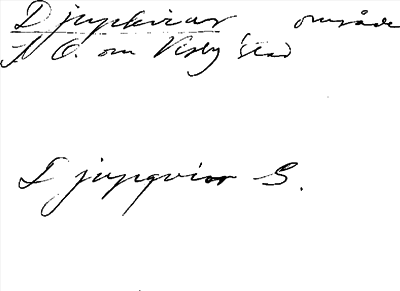 Djupkviar område
N O. om Visby stad
Djupqvior S.